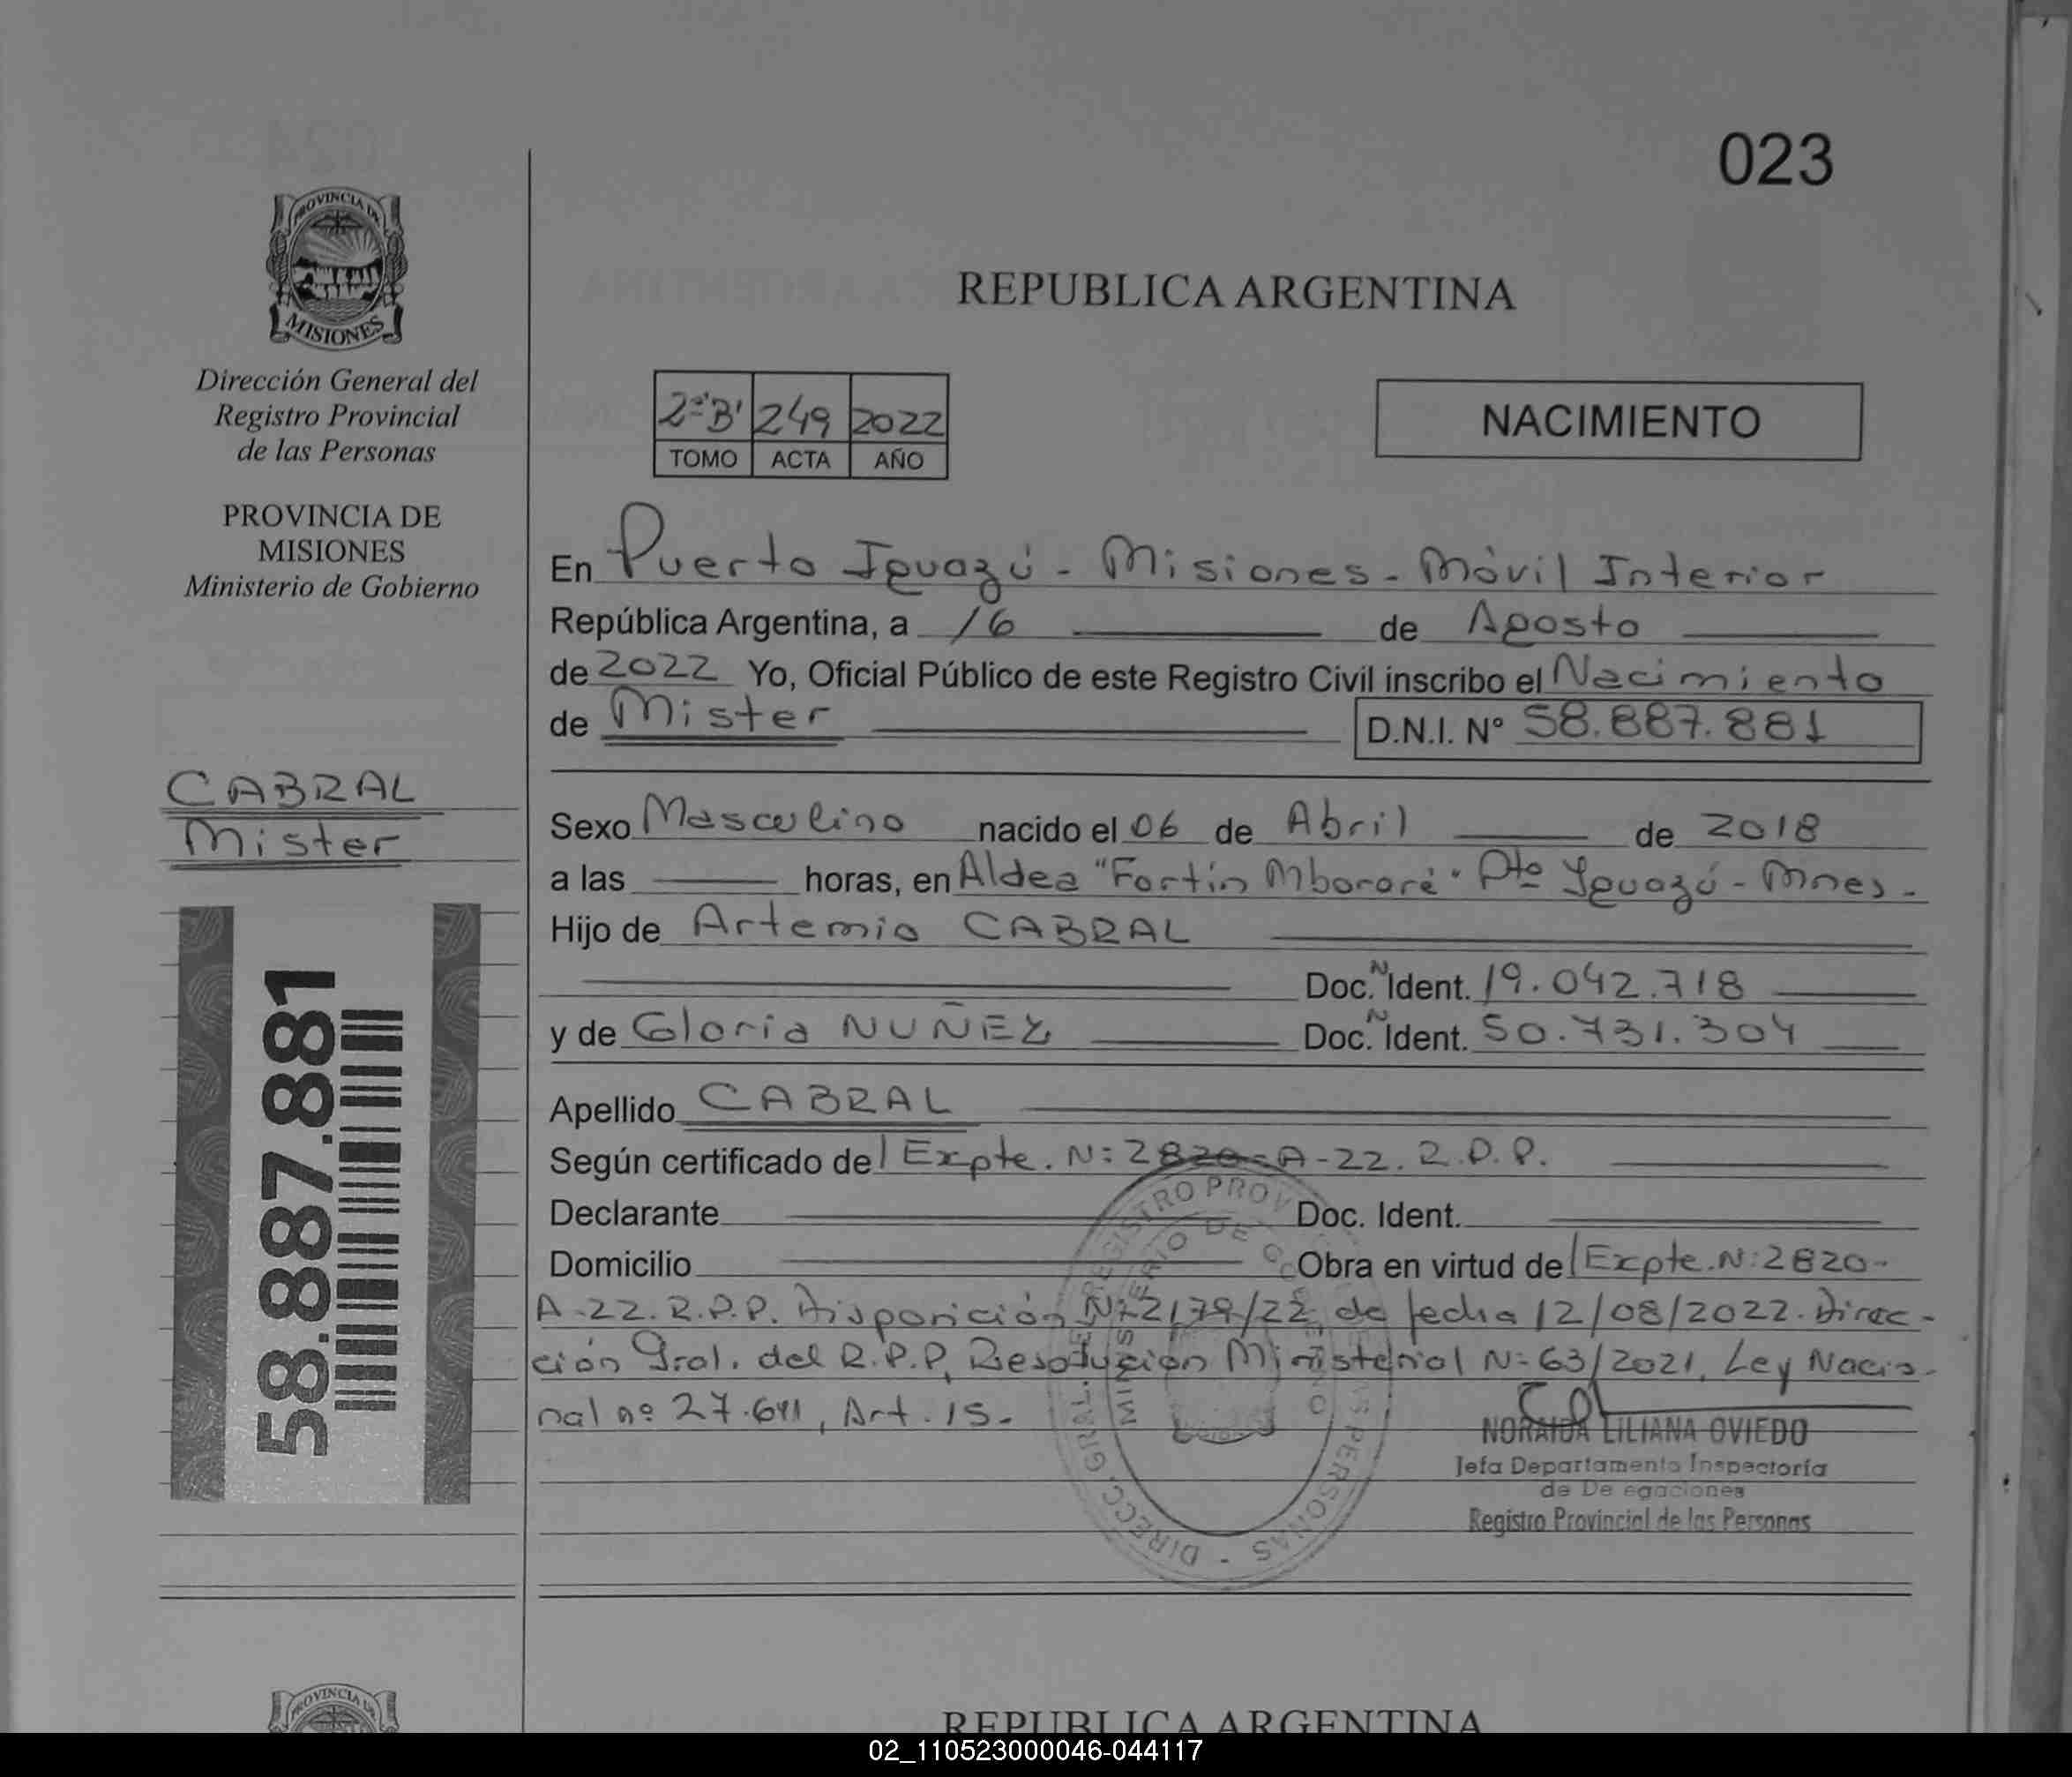 023
PROVINCIA DE
MISIONES
Dirección General del
Registro Provincial
de las Personas
PROVINCIA DE
MISIONES
Ministerio de Gobierno
CABRAL
Mister
58.887.881
REPUBLICA ARGENTINA
2º"B" 249 2022
TOMO ACTA AÑO
NACIMIENTO
En Puerto Iguazú - Misiones - Móvil Interior
República Argentina, a 16 de Agosto
de 2022 Yo, Oficial Público de este Registro Civil inscribo el Nacimiento
de Mister D.N.I. Nº 58.887.881
Sexo Masculino nacido el 06 de Abril de 2018
a las horas, en Aldea "Fortín Mbororé" Pto Iguazú - Mnes -
Hijo de Artemio CABRAL
Doc. N Ident. 19.042.718
y de Gloria NUÑEZ Doc. N Ident. 50.731.304
Apellido CABRAL
Según certificado del Expte. N: 2820-A-22. R.P.P.
Declarante Doc. Ident.
Domicilio Obra en virtud del Expte. N: 2820-
A-22. R.P.P. Disposición N: 2179/22 de fecha 12/08/2022. Direc-
ción Gral. del R.P.P, Resolución Ministerial N: 63/2021, Ley Nacio-
nal nº 27.611, Art. 15.-
DIRECC. GRAL. REGISTRO PROV PERSONAS
NORAIDA LILIANA OVIEDO
Jefa Departamento Inspectoría
de De egaciones
Registro Provincial de las Personas
PROVINCIA
REPUBLICA ARGENTINA
02_110523000046-044117